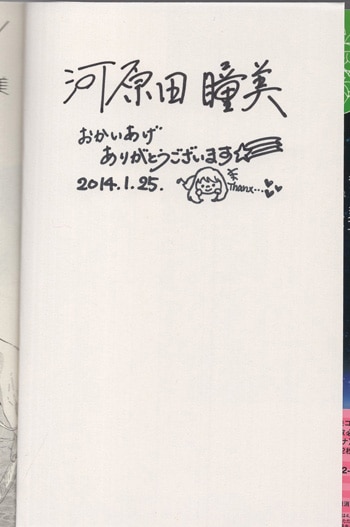 河原田瞳美
おかいあげ
ありがとうございます☆
2014.1.25.
Thanx...♥♥♥